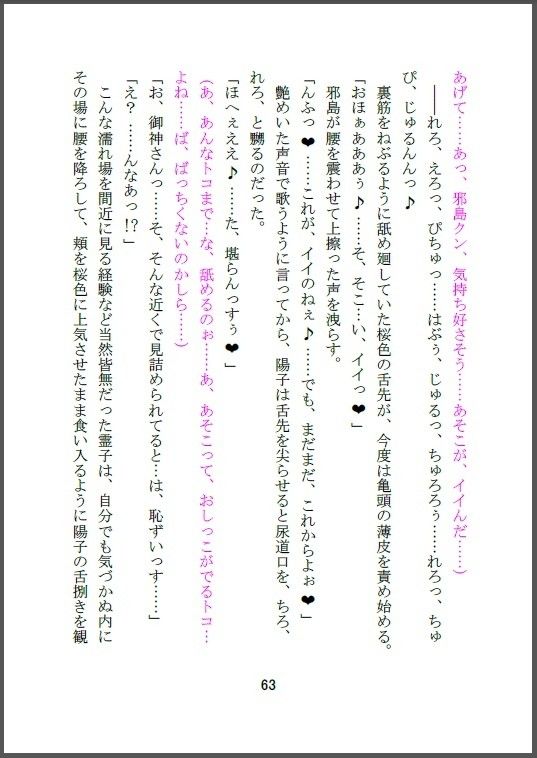 あげて……あっ、邪島クン、気持ち好さそう……あそこが、イイんだ……）
　――れろ、えろっ、ぴちゅっ……はぶぅ、じゅるっ、ちゅろろぅ……れろっ、ちゅ
ぴ、じゅるんんっ♪
　裏筋をねぶるように舐め廻していた桜色の舌先が、今度は亀頭の薄皮を責め始める。
「おほぁあああぅ♪……そ、そこ…い、イイっ❤」
　邪島が腰を震わせて上擦った声を洩らす。
「んふっ❤……これが、イイのねぇ♪……でも、まだまだ、これからよぉ❤」
　艶めいた声音で歌うように言ってから、陽子は舌先を尖らせると尿道口を、ちろ、
れろ、と嬲るのだった。
「ほへぇええ♪……た、堪らんっすぅ❤」
（あ、あんなトコまで…な、舐めるのぉ……あ、あそこって、おしっこがでるトコ…
よね……ば、ばっちくないのかしら……）
「お、御神さんっ……そ、そんな近くで見詰められてると…は、恥ずいっす……」
「え？ ……んなあっ!?」
　こんな濡れ場を間近に見る経験など当然皆無だった霊子は、自分でも気づかぬ内に
その場に腰を降ろして、頬を桜色に上気させたまま食い入るように陽子の舌捌きを観
63